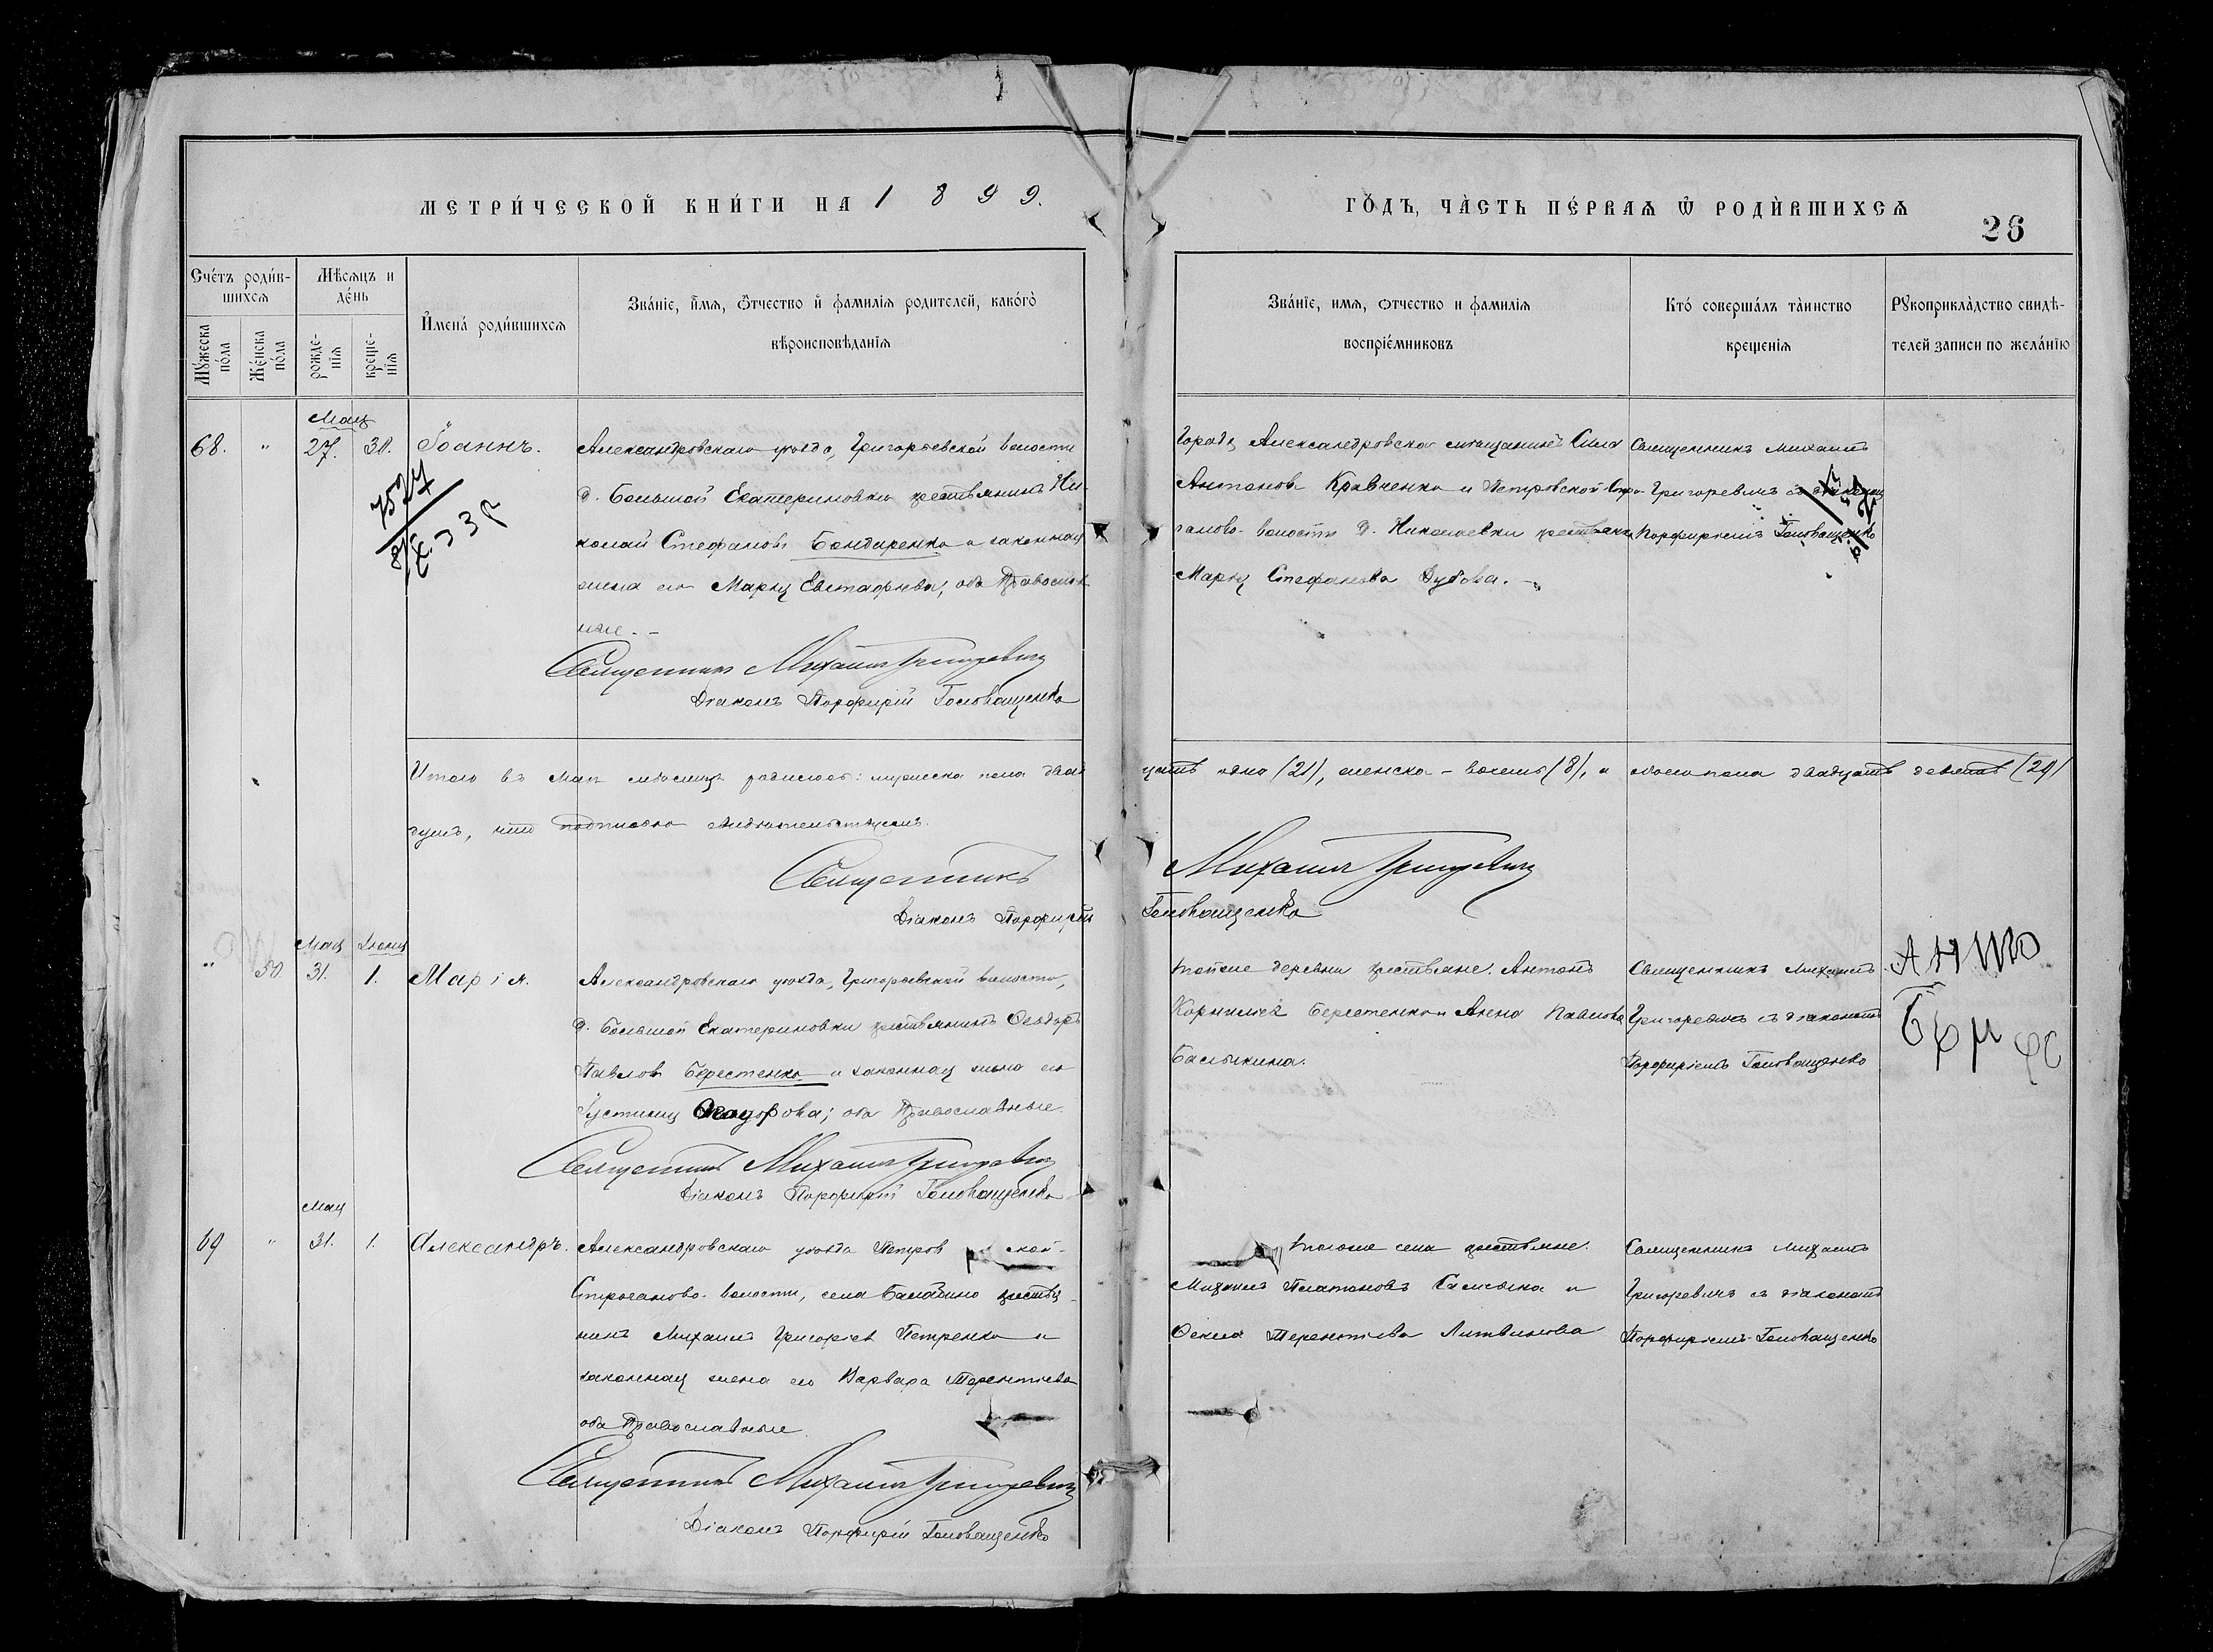 МЕТРИ́ЧЕСКОЙ КНИ́ГИ НА 1899.
ГО́ДЪ, ЧА̀СТЬ ПЕ́РВАѦ Ѿ РОДИ́ВШИХСѦ
26
Сче́тъ роди́в-
шихсѧ
Мѣ́сѧцъ и
де́нь
Мꙋ́жеска
по́ла
Же́нска
по́ла
рожде-
нїѧ
креще-
нїѧ
И҆мена̀ роди́вшихсѧ
Зва́нїе, и҆́мѧ, ѻ҆́тчество и҆ фами́лїѧ родителей, како́гѡ
вѣроисповѣданїѧ
Зва́нїе, имѧ, ѻтчество и фамилїѧ
воспрїе́мниковъ
Кто́ соверша́лъ та̀инство
креще́нїѧ
Рꙋкоприкла̀дство свидѣ-
телей записи по жела́нїю
68. " Мая 27. 30. Іоаннъ.
Александровскаго уѣзда, Григорьевской волости
д. Большой Екатериновки крестьянинъ Ни-
колай Стефановъ Бондаренко и законная
жена его Марія Евстафіева; оба Православ-
ные. –
Священникъ Михаилъ Григоревичъ
Діаконъ Порфирій Головащенко
Города Александровска мѣщанинъ Сила
Антоновъ Кравченко и Петровской-Стро-
ганово- волости д. Николаевки крестьянка
Марія Стефанова Дубова. –
Священникъ Михаилъ
Григоревичъ съ діакономъ
Порфиріемъ Головащенко
Итого въ маѣ мѣсяцѣ родилось: мужеска пола двад
цать одно (21), женска – восемь (8), и обоего пола двадцать девять (29)
душъ, что подписью свидѣтельствуемъ.
Священникъ Михаилъ Григоревичъ
Діаконъ Порфирій Головащенко
" 50. Мая 31. Іюня 1. Марія.
Александровскаго уѣзда, Григорьевской волости,
д. Большой Екатериновки крестьянинъ Ѳеодоръ
Павловъ Берестенко и законная жена его
Іустинія; оба Православные.
Священникъ Михаилъ Григоревичъ
Діаконъ Порфирій Головащенко
тойже деревни крестьяне. Антонъ
Корниліевъ Берестенко и Анна Павлова
Баслыкина.
Священникъ Михаилъ
Григоревичъ съ діакономъ
Порфиріемъ Головащенко
69 " Мая 31. 1. Александръ.
Александровскаго уѣзда Петровской-
Строганово- волости, села Балабино крестья-
нинъ Михаилъ Григоріевъ Петренко и
законная жена его Варвара Терентіева
оба Православные
Священникъ Михаилъ Григоревичъ
Діаконъ Порфирій Головащенко
тогоже села крестьяне.
Михаилъ Платоновъ и
Терентіева Литвинова
Священникъ Михаилъ
Григоревичъ съ діакономъ
Порфиріемъ Головащенко